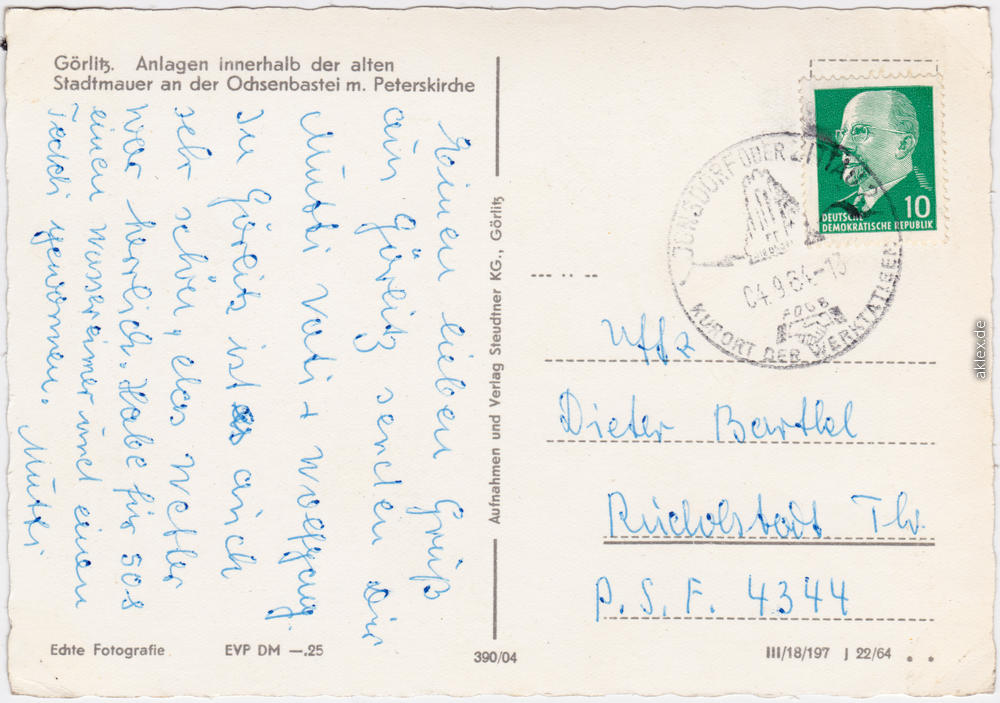 Görlitz. Anlagen innerhalb der alten
Stadtmauer an der Ochsenbastei m. Peterskirche
Einen lieben Gruß
aus Görlitz senden Dir
Mutti Vati + Wolfgang
In Görlitz ist es auch
sehr schön, das Wetter
war herrlich. Habe für 50 ₰
einen Wassereimer und einen
Teddi gewonnen. Mutti
Aufnahmen und Verlag Steudtner KG., Görlitz
Echte Fotografie
EVP DM —.25
390/04
DEUTSCHE
DEMOKRATISCHE REPUBLIK
10
JONSDORF ÜBER ZITTAU 2
04.9.64-18
FDGB
KURORT DER WERKTÄTIGEN
Uffz
Dieter Barthel
Rudolstadt Th.
P.S.F. 4344
III/18/197 J 22/64
aklex.de